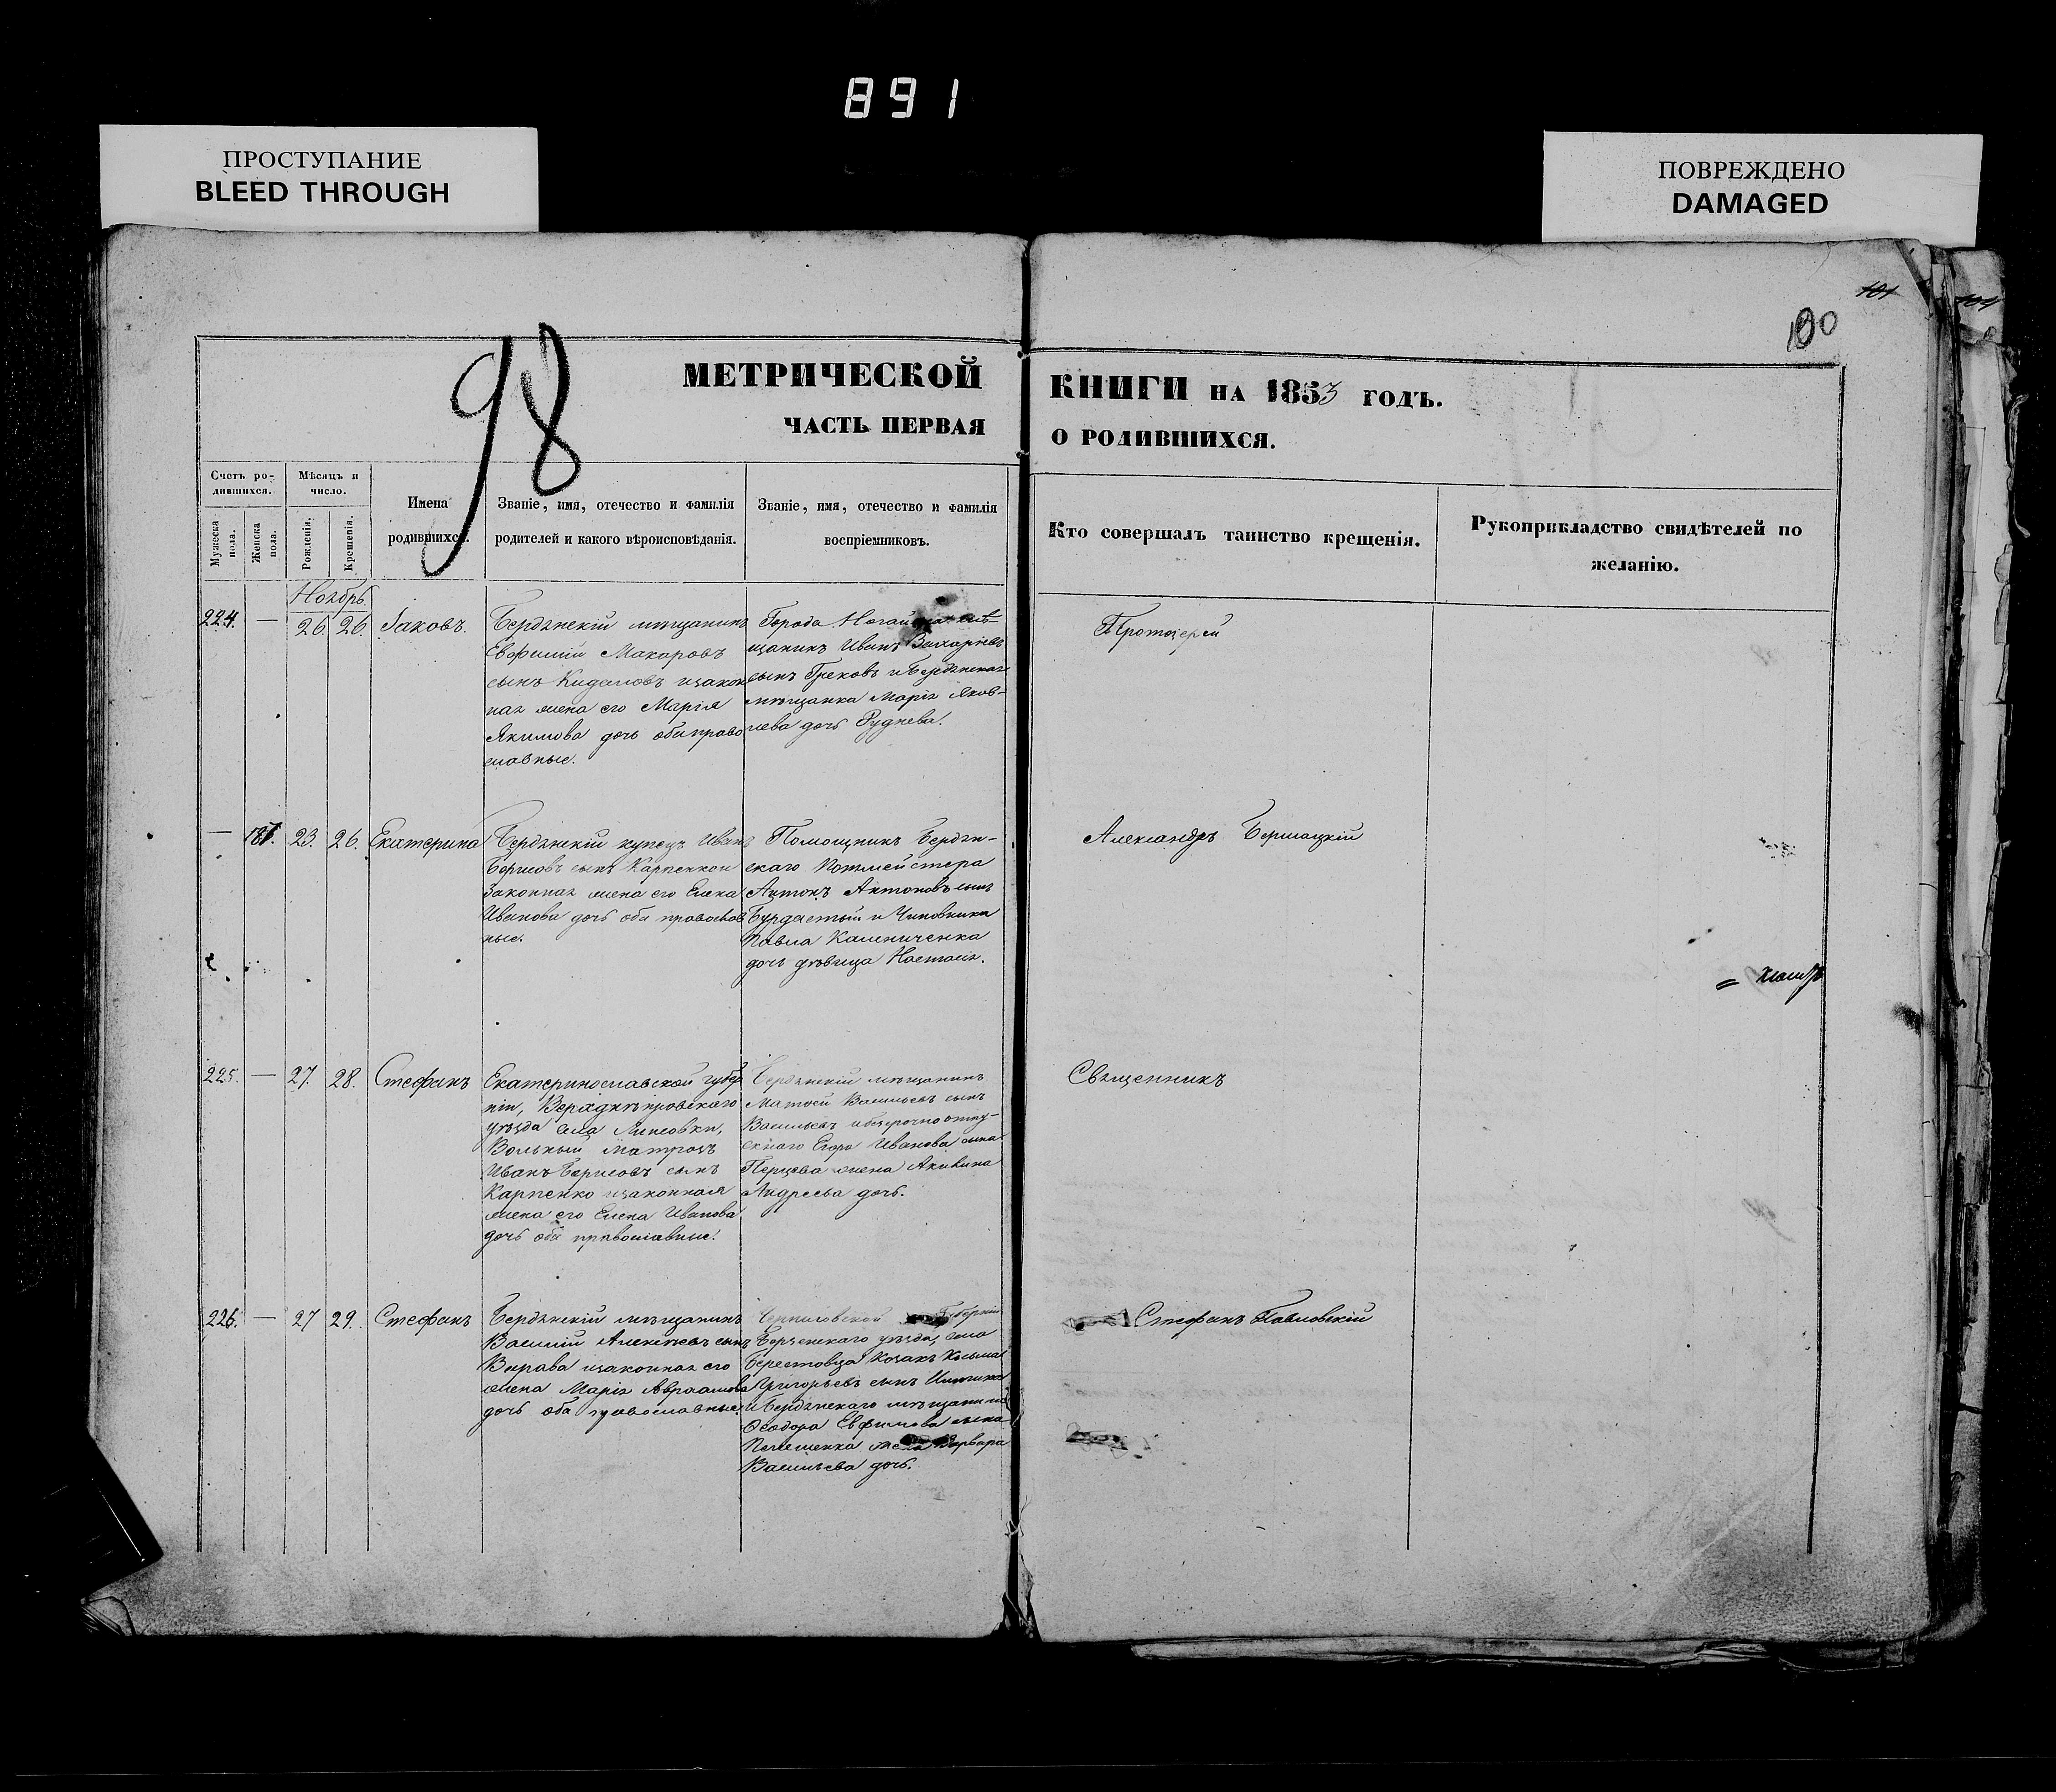 891
ПРОСТУПАНИЕ
BLEED THROUGH
ПОВРЕЖДЕНО
DAMAGED
101
100
98
МЕТРИЧЕСКОЙ
КНИГИ НА 1853 ГОДЪ.
ЧАСТЬ ПЕРВАЯ
О РОДИВШИХСЯ.
Счетъ ро-
дившихся.
Мужеска пола.
Женска пола.
Мѣсяцъ и
число.
Рожденія.
Крещенія.
Имена
родившихся.
Званіе, имя, отечество и фамилія
родителей и какого вѣроисповѣданія.
Званіе, имя, отечество и фамилія
воспріемниковъ.
Кто совершалъ таинство крещенія.
Рукоприкладство свидѣтелей по
желанію.
Ноябрь.
224. — 26. 26. Іаковъ.
Бердянскій мѣщанинъ
Евфимій Макаровъ
сынъ изакон
ная жена его Марія
Якимова дочь оба право
славные.
Города
щанинъ Иванъ Захаріевъ
сынъ Грековъ и Бердянская
мѣщанка Марія Яков-
лева дочь Руднева.
Протоіерей
— 187. 23. 26. Екатерина
Бердянскій купецъ Иванъ
Борисовъ сынъ
Законная жена его Елена
Иванова дочь оба православ
ные.
Помощникъ Бердян-
скаго Почтмейстера
Антонъ Антоновъ сынъ
и Чиновника
Павла Калениченка
дочь дѣвица Настасія.
Александръ
225. — 27. 28. Стефанъ
Екатеринославской губер
ніи, Верхднѣпровскаго
уѣзда села
Вольный матросъ
Иванъ Борисовъ сынъ
Карпенко изаконная
жена его Елена Иванова
дочь оба православные.
Бердянскій мѣщанинъ
Матвей Васильевъ сынъ
Васильевъ
Егора Иванова сына
Перцева жена Акилина
Андреева дочь.
Священникъ
226. — 27 29. Стефанъ
Бердянскій мѣщанинъ
Василій Алексѣевъ сынъ
Вырава изаконная его
жена Марія Авраамова
дочь оба православные.
Черниговской Губерніи
Борзенскаго уѣзда, села
Берестовца Козакъ Косьма
Григорьевъ сынъ
и Бердянскаго мѣщанина
Ѳеодора Евфимова сына
жена Варвара
Васильева дочь.
Стефанъ Павловскій